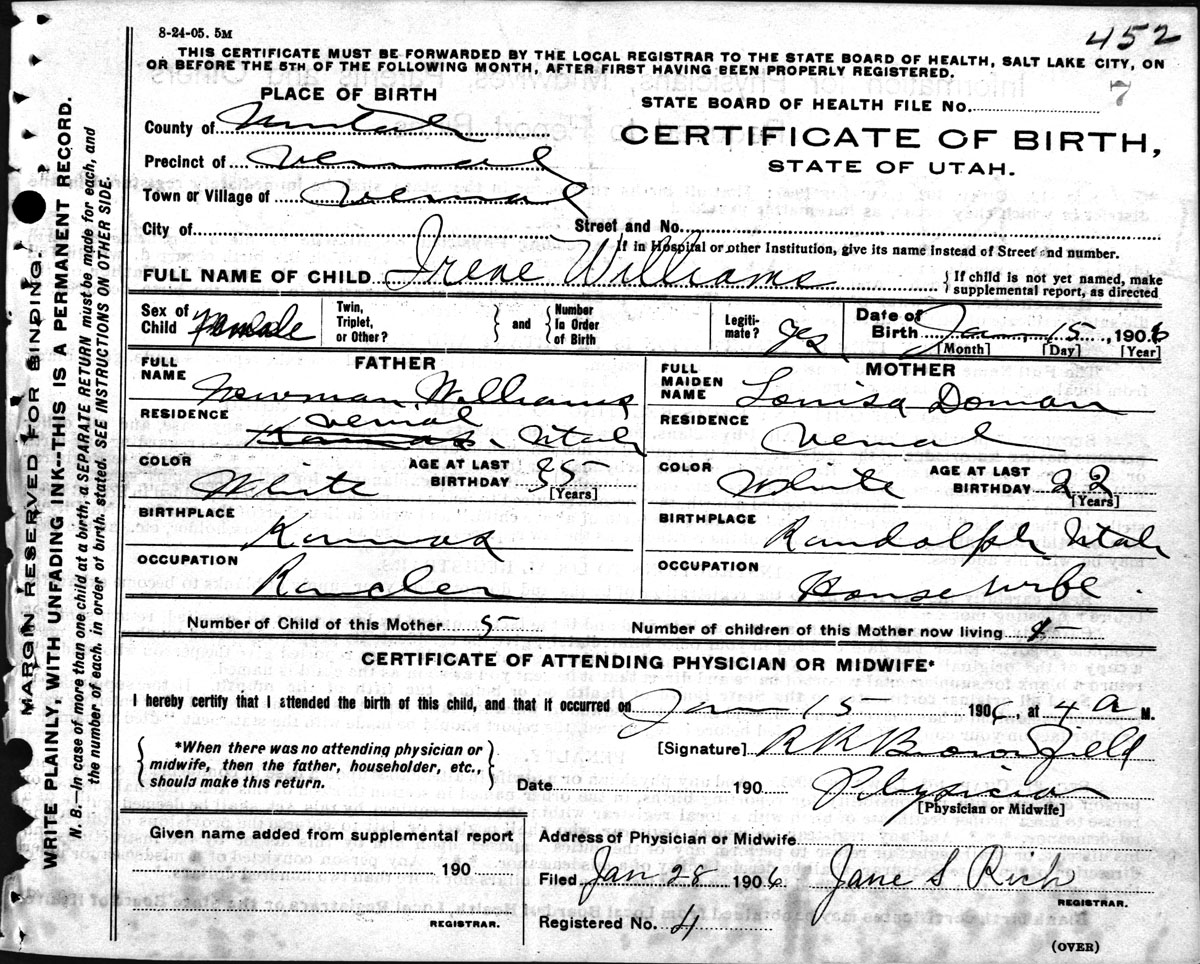 8-24-05. 5M
452
THIS CERTIFICATE MUST BE FORWARDED BY THE LOCAL REGISTRAR TO THE STATE BOARD OF HEALTH, SALT LAKE CITY, ON
OR BEFORE THE 5TH OF THE FOLLOWING MONTH, AFTER FIRST HAVING BEEN PROPERLY REGISTERED.
PLACE OF BIRTH
STATE BOARD OF HEALTH FILE No. 7
County of Uintah
CERTIFICATE OF BIRTH,
STATE OF UTAH.
Precinct of Vernal
Town or Village of Vernal
City of Street and No.
If in Hospital or other Institution, give its name instead of Street and number.
FULL NAME OF CHILD Irene Williams
{If child is not yet named, make
supplemental report, as directed
Sex of Child Female
Twin, Triplet, or Other? } and { Number In Order of Birth
Legiti-mate? Yes
Date of Birth Jan 15, 1906
[Month] [Day] [Year]
FATHER
FULL NAME Newman Williams
RESIDENCE Vernal Utah
COLOR White AGE AT LAST BIRTHDAY 35
[Years]
BIRTHPLACE Kamas
OCCUPATION
MOTHER
FULL MAIDEN NAME Louisa Doman
RESIDENCE Vernal
COLOR White AGE AT LAST BIRTHDAY 22
[Years]
BIRTHPLACE Randolph Utah
OCCUPATION House Wife.
Number of Child of this Mother 5 Number of children of this Mother now living 4
CERTIFICATE OF ATTENDING PHYSICIAN OR MIDWIFE*
I hereby certify that I attended the birth of this child, and that it occurred on Jan 15 1906, at 4 a M.
{ *When there was no attending physician or
midwife, then the father, householder, etc.,
should make this return. }
[Signature]
Date 190 Physician
[Physician or Midwife]
Given name added from supplemental report
190
REGISTRAR.
Address of Physician or Midwife
Filed Jan 28 1906. Jane S Rich
REGISTRAR.
Registered No. 4
(OVER)
MARGIN RESERVED FOR BINDING.
WRITE PLAINLY, WITH UNFADING INK---THIS IS A PERMANENT RECORD.
N. B.—In case of more than one child at a birth, a SEPARATE RETURN must be made for each, and
the number of each, in order of birth, stated. SEE INSTRUCTIONS ON OTHER SIDE.